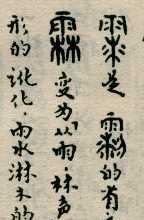 是 的
霖 变为从雨，林声
形的讹化，雨水淋木的